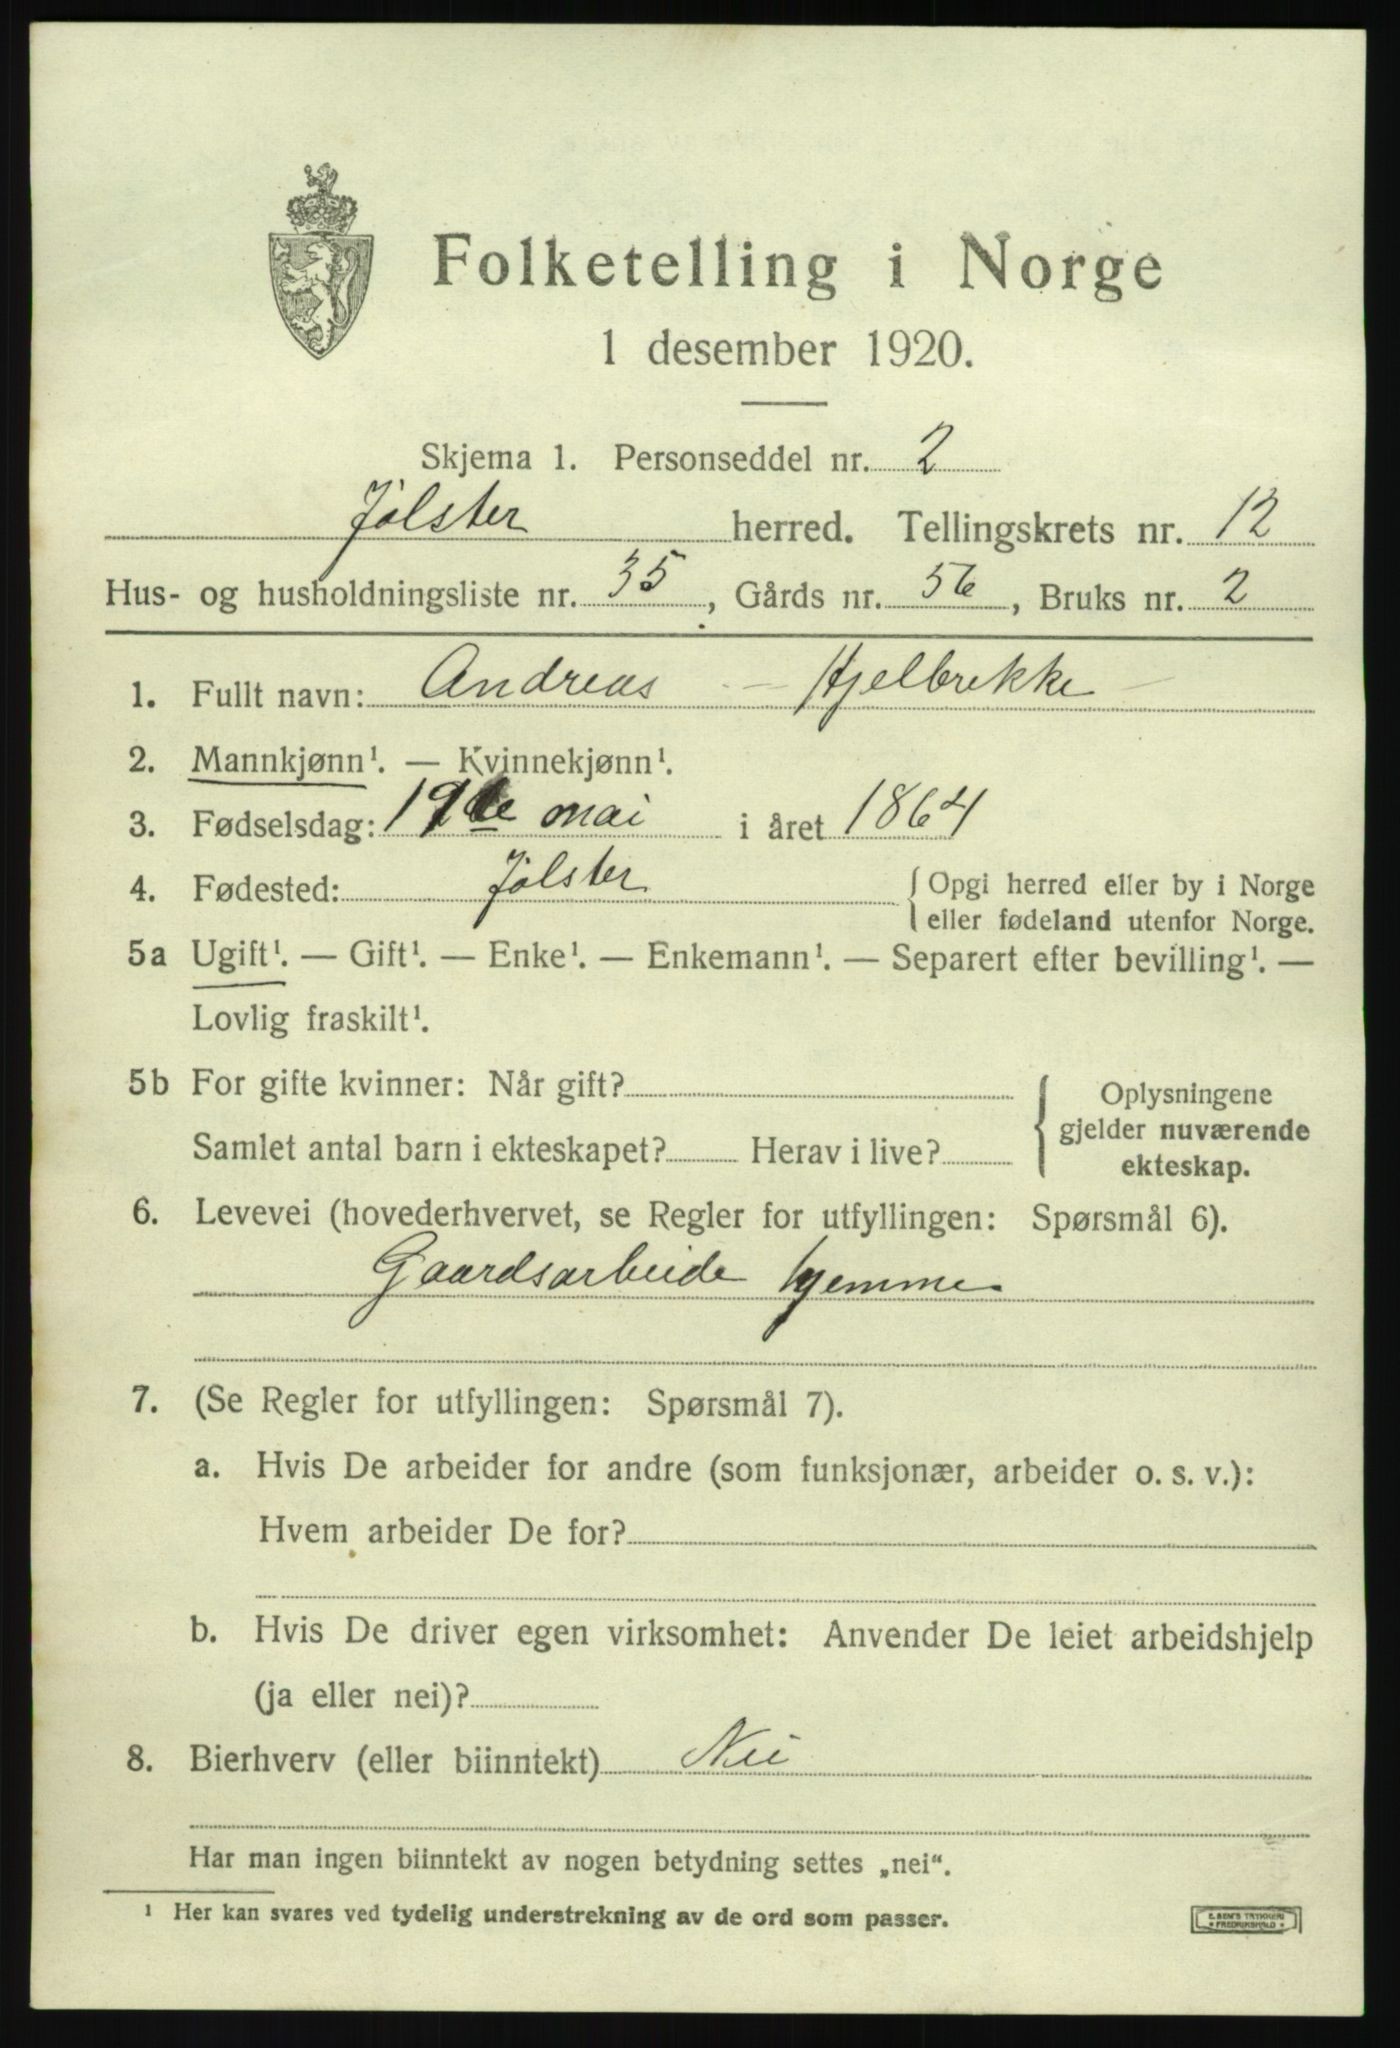 Folketelling i Norge
1 desember 1920.
Skjema 1. Personseddel nr. 2
Jølster herred. Tellingskrets nr. 12
Hus- og husholdningsliste nr. 35, Gårds nr. 56, Bruks nr. 2
1. Fullt navn: Andreas — Hjelbrekke —
2. Mannkjønn¹. — Kvinnekjønn¹.
3. Fødselsdag: 19de mai i året 1864
4. Fødested: Jølster { Opgi herred eller by i Norge
eller fødeland utenfor Norge.
5a Ugift¹. — Gift¹. — Enke¹. — Enkemann¹. — Separert efter bevilling¹. —
Lovlig fraskilt¹.
5b For gifte kvinner: Når gift? { Oplysningene
gjelder nuværende
Samlet antal barn i ekteskapet? Herav i live?
ekteskap.
6. Levevei (hovederhvervet, se Regler for utfyllingen: Spørsmål 6).
Gaardsarbeide hjemme.
7. (Se Regler for utfyllingen: Spørsmål 7).
a. Hvis De arbeider for andre (som funksjonær, arbeider o. s. v.):
Hvem arbeider De for?
b. Hvis De driver egen virksomhet: Anvender De leiet arbeidshjelp
(ja eller nei)?
8. Bierhverv (eller biinntekt) Nei
Har man ingen biinntekt av nogen betydning settes „nei“.
¹ Her kan svares ved tydelig understrekning av de ord som passer.
TRYKKERI
FREDRIKSHALD